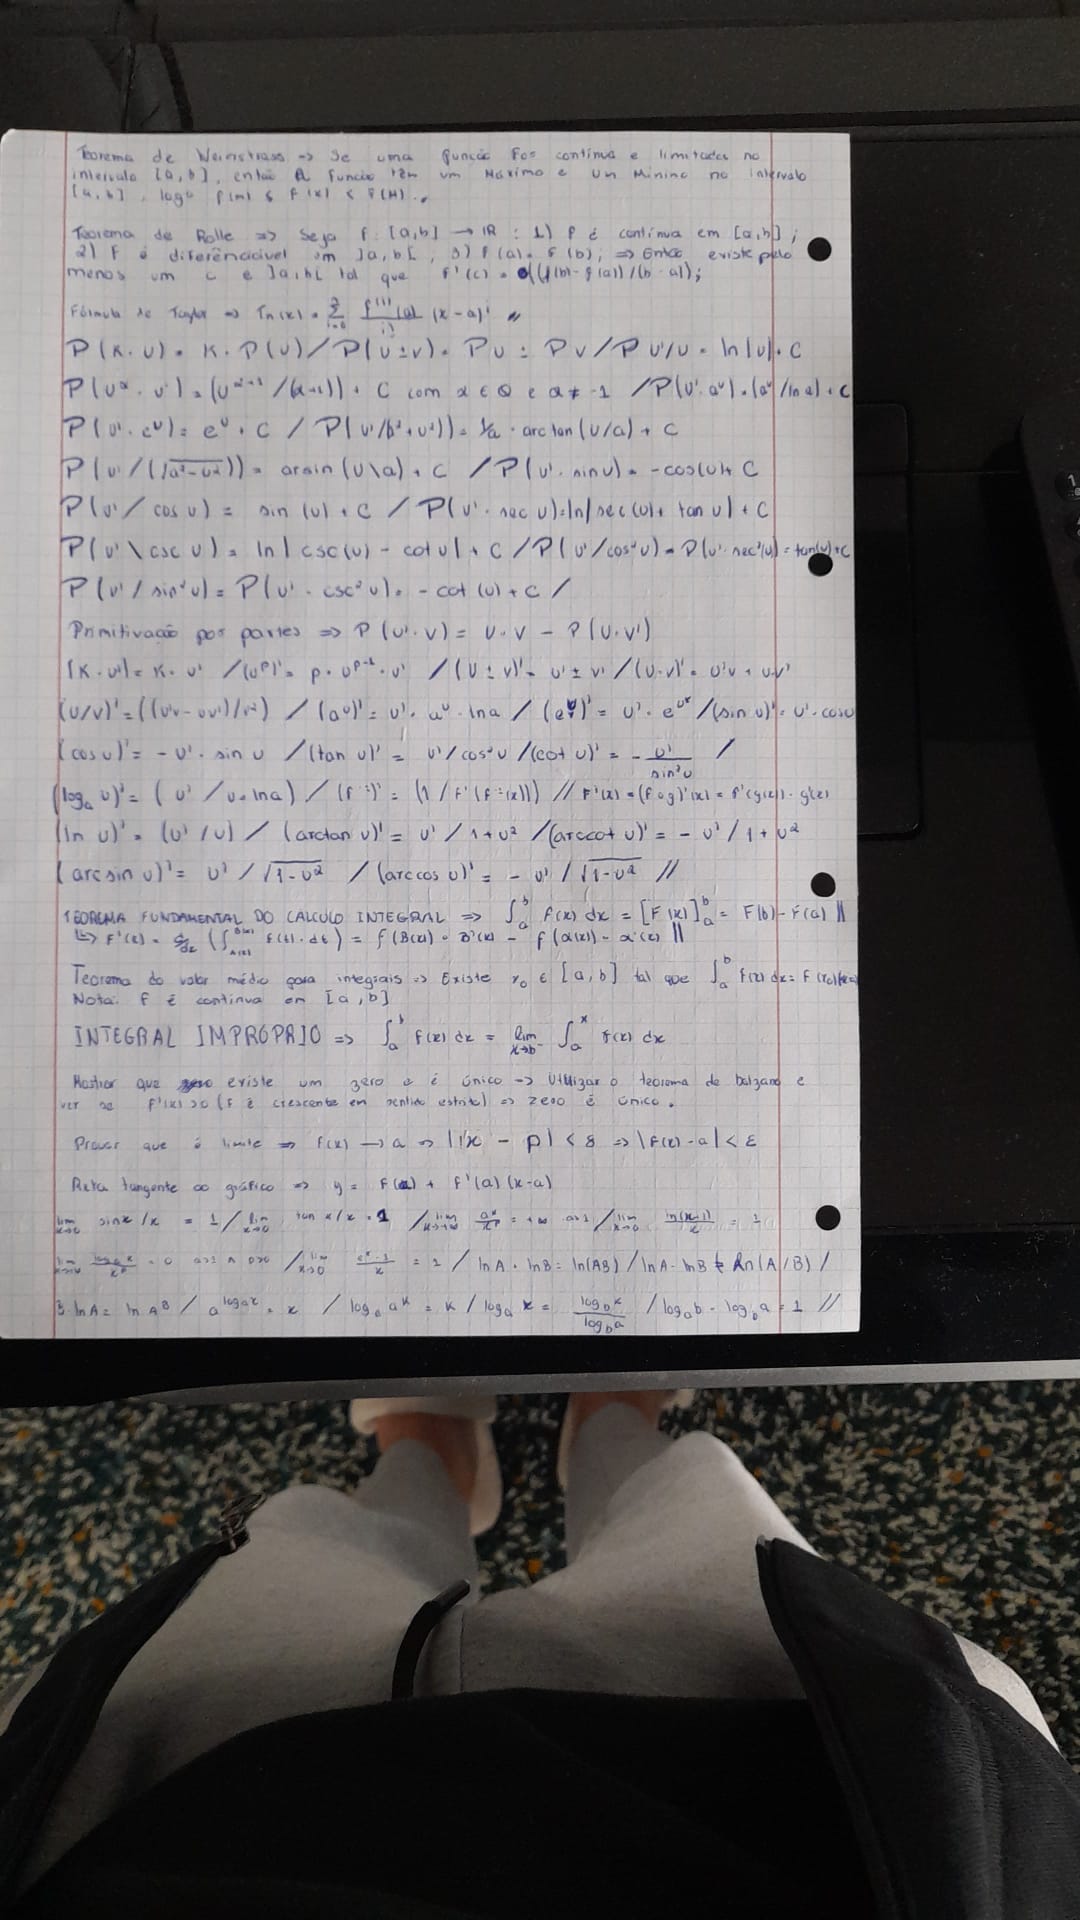 Teorema de Weirstrass -> Se uma função for continua e limitada no
intervalo [a,b], então a função têm um Máximo e um Minimo no intervalo
[a,b], logo f(m) ≤ f(x) < f(M).
Teorema de Rolle => Seja f: [a,b] → IR : 1) f é continua em [a,b];
2) f é diferênciavel em ]a,b[, 3) f(a) = f(b); => Então existe pelo
menos um c e ]a,b[ tal que f'(c) = ((f(b)-f(a))/(b-a));
Fórmula de Taylor => Tn(x) = (x-a)^i //
P(K.U) = K.P(U)/P(U±V) = PU ± PV/P U'/U = ln|U| + C
P(U^α.U') = (U^(α+1)/(α+1)) + C com α ∈ Q e α ≠ -1 /P(U'.a^U) = (a^U/ln a) + C
P(U'.e^U) = e^U + C / P(U'/b²+U²)) = 1/a . arctan(U/a) + C
P(U'/(√a²-U²)) = arsin(U\a) + C /P(U'. sin U) = -cos(U)+ C
P(U'/ cos U) = sin (U) + C / P(U'. sec U) = ln|sec(U)+ tan U| + C
P(U' \ csc U) = ln|csc(U) - cot U| + C /P(U'/cos²U) = P(U'. sec²(U) = tan(U)+C
P(U'/ sin²U) = P(U'. csc²U) = - cot (U) + C /
Primitivação por partes => P(U'.V) = U.V - P(U.V')
(K.U)' = K.U' /(U^P)' = p.U^(P-1).U' /(U±V)' = U'±V' /(U.V)' = U'V + U.V'
(U/V)' = ((U'V-UV')/V²) / (a^U)' = U'. a^U . ln a / (e^U)' = U'. e^Ux /(sin U)' = U'. cos U
(cos U)' = - U'. sin U /(tan U)' = U'/cos²U /(cot U)' = - U'/sin²U /
(log_a U)' = (U'/U.ln a) / (f^-1)' = (1/f'(f^-1(x))) // F'(x) = (f o g)'(x) = f'(g(x)). g'(x)
(ln U)' = (U'/U) / (arctan U)' = U'/1+U² /(arccot U)' = - U'/1+U²
(arcsin U)' = U'/√1-U² / (arccos U)' = - U'/√1-U² //
TEOREMA FUNDAMENTAL DO CALCULO INTEGRAL => ∫_a^b f(x) dx = [F(x)]_a^b = F(b)-F(a) ||
↳ F'(x) = d/dx (∫ f(t).dt) = f(B(x)). B'(x) - f(α(x)). α'(x) ||
Teorema do valor médio para integrais => Existe x₀ ∈ [a,b] tal que ∫_a^b f(x) dx = F(x₀)
Nota: F é continua em [a,b]
INTEGRAL IMPROPRIO => ∫_a^b f(x) dx = lim x→b⁻ ∫_a^x f(x) dx
Mostrar que existe um zero e é único -> Utilizar o teorema de balzano e
ver se F'(x) >0 (F é crescente em sentido estrito) => zero é único.
Provar que é limite => f(x) → a => |x - p| < δ => |f(x)-a| < ε
Reta tangente ao gráfico => y = F(a) + F'(a)(x-a)
lim x→0 sin x/x = 1 / lim x→0 tan x/x = 1 / lim x→+∞ a^x/x^p = +∞ a>1 / lim x→0 = 1
lim x→+∞ log_a x/x^p = 0 a>1 ∧ p>0 / lim x→0 e^x-1/x = 1 / ln A + ln B = ln(AB) / ln A - ln B = ln(A/B) /
B.ln A = ln A^B / a^(log_a x) = x / log_a a^x = x / log_a x = log_b x/log_b a / log_a b . log_b a = 1 //